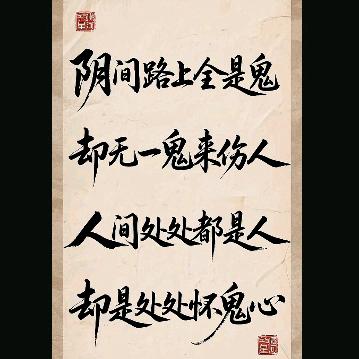 阴间路上全是鬼
却无一鬼来伤人
人间处处都是人
却是处处怀鬼心